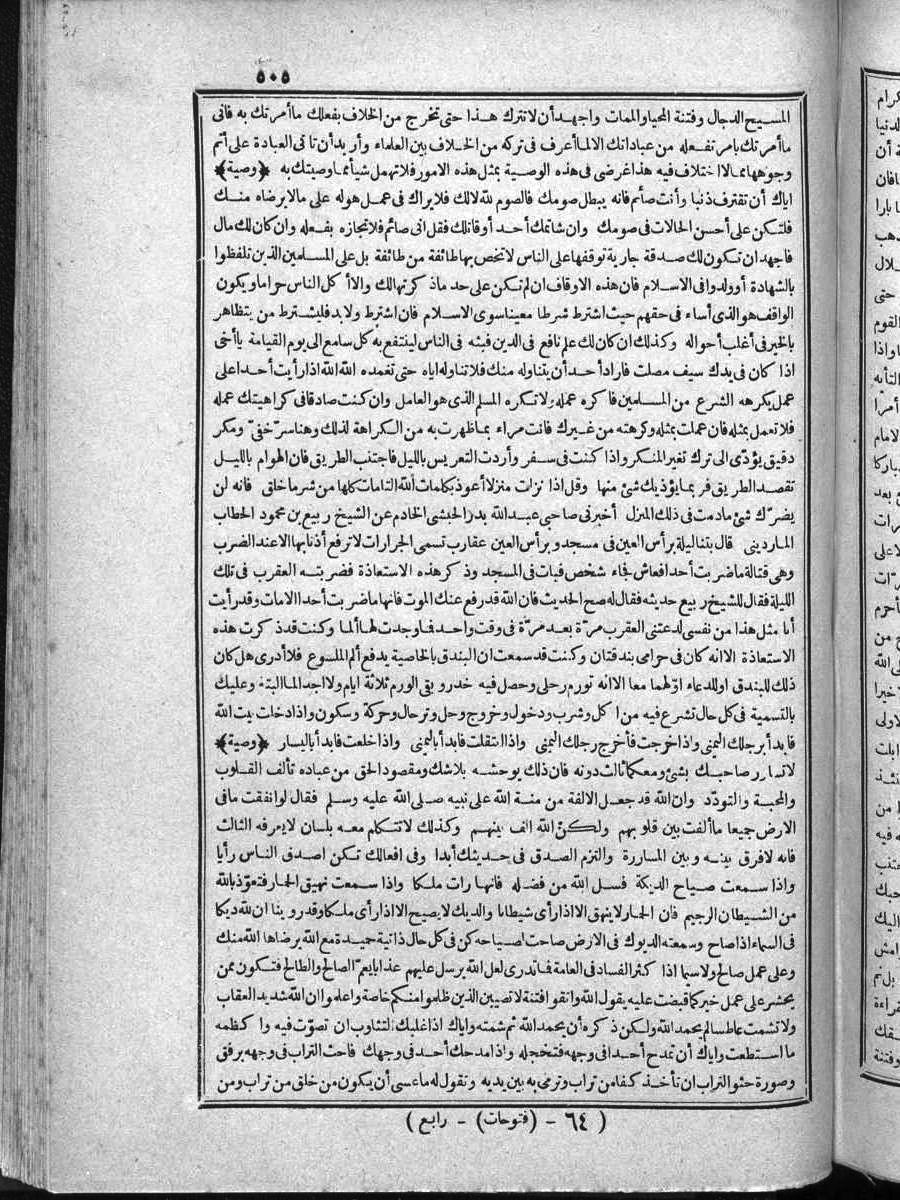 ٥٠٥
المسيح الدجال وفتنة المحيا والممات واجهد أن لا تترك هذا حتى تخرج من الخلاف بفعلك ما أمرتك به فانى
ما أمرتك بامر تفعله من عباداتك الا لما أعرف فى تركه من الخلاف بين العلماء وأريد أن تاتى العبادة على أتم
وجوهها مما لا اختلاف فيه هذا غرضى فى هذه الوصية بمثل هذه الامور فلا تهمل شيأ مما وصيتك به ﴿وصية﴾
اياك أن تقترف ذنبا وأنت صائم فانه يبطل صومك فالصوم لله لا لك فلا يراك فى عمل هو له على ما لا يرضاه منك
فلتكن على أحسن الحالات فى صومك وان شاتمك أحد أو قاتلك فقل انى صائم فلا تجازه بفعله وان كان لك مال
فاجهد ان تكون لك صدقة جارية توقفها على الناس لا تخص بها طائفة من طائفة بل على المسلمين الذين تلفظوا
بالشهادة أو ولدوا فى الاسلام فان هذه الاوقاف ان لم تكن على حد ما ذكرته لك والا أكل الناس حراما ويكون
الواقف هو الذى أساء فى حقهم حيث اشترط شرطا معينا سوى الاسلام فان اشترط ولا بد فليشترط من يتظاهر
بالخير فى أغلب أحواله وكذلك ان كان لك علم نافع فى الدين فبثه فى الناس لينتفع به كل سامع الى يوم القيامة يا أخى
اذا كان فى يدك سيف مصلت فاراد أحد أن يتناوله منك فلا تناوله اياه حتى تغمده الله الله اذا رأيت أحدا على
عمل يكرهه الشرع من المسلمين فاكره عمله ولا تكره المسلم الذى هو العامل وان كنت صادقا فى كراهيتك عمله
فلا تعمل بمثله فان عملت بمثله وكرهته من غيرك فانت مراء بما ظهرت به من الكراهة لذلك وهنا سر خفى ومكر
دقيق يؤدى الى ترك تغير المنكر واذا كنت فى سفر وأردت التعريس بالليل فاجتنب الطريق فان الهوام بالليل
تقصد الطريق فربما يؤذيك شئ منها وقل اذا نزلت منزلا أعوذ بكلمات الله التامات كلها من شر ما خلق فانه لن
يضرك شئ مادمت فى ذلك المنزل أخبرنى صاحبى عبد الله بدر الحبشى الخادم عن الشيخ ربيع بن محمود الحطاب
الماردينى قال بتنا ليلة برأس العين فى مسجد وبرأس العين عقارب تسمى الجرارات لا ترفع أذنابها الا عند الضرب
وهى قتالة ما ضربت أحدا فعاش فجاء شخص فبات فى المسجد وذكر هذه الاستعاذة فضربته العقرب فى تلك
الليلة فقال للشيخ ربيع حديثه فقال له صح الحديث فان الله قد رفع عنك الموت فانها ما ضربت أحدا الا مات وقد رأيت
أنا مثل هذا من نفسى لدغتنى العقرب مرة بعد مرة فى وقت واحد فما وجدت لها ألما وكنت قد ذكرت هذه
الاستعاذة الا انه كان فى حزامى بندقتان وكنت قد سمعت ان البندق بالخاصية يدفع ألم الملسوع فلا أدرى هل كان
ذلك للبندق او للدعاء او لهما معا الا انه تورم رجلى وحصل فيه خدر وبقى الورم ثلاثة ايام ولا اجد الما البتة وعليك
بالتسمية فى كل حال تشرع فيه من اكل وشرب ودخول وخروج وحل وترحال وحركة وسكون واذا دخلت بيت الله
فابدأ برجلك اليمنى واذا خرجت فأخرج رجلك اليمنى واذا انتعلت فابدأ باليمنى واذا خلعت فابدأ باليسار ﴿وصية﴾
لا تسارر صاحبك بشئ ومعكما ثالث دونه فان ذلك يوحشه بلا شك ومقصود الحق من عباده تألف القلوب
والمحبة والتودد وان الله قد جعل الالفة من منة الله على نبيه صلى الله عليه وسلم فقال لو انفقت ما فى
الارض جميعا ما ألفت بين قلوبهم ولكن الله الف بينهم وكذلك لا تتكلم معه بلسان لا يعرفه الثالث
فانه لا فرق بينه وبين المساررة والتزم الصدق فى حديثك أبدا وفى افعالك تكن اصدق الناس رأيا
واذا سمعت صياح الديكة فسل الله من فضله فانها رات ملكا واذا سمعت نهيق الحمار فتعوذ بالله
من الشيطان الرجيم فان الحمار لا ينهق الا اذا رأى شيطانا والديك لا يصيح الا اذا رأى ملكا وقد روينا ان لله ديكا
فى السماء اذا صاح وسمعته الديوك فى الارض صاحت لصياحه كن فى كل حال ذا نية حميدة مع الله يرضاها الله منك
وعلى عمل صالح ولا سيما اذا كثر الفساد فى العامة فما تدرى لعل الله يرسل عليهم عذابا يعم الصالح والطالح فتكون ممن
يحشر على عمل خير كما قبضت عليه يقول الله واتقوا فتنة لا تصيبن الذين ظلموا منكم خاصة واعلموا ان الله شديد العقاب
ولا تشمت عاطسا لم يحمد الله ولكن ذكره أن يحمد الله ثم شمته واياك اذا غلبك التثاوب ان تصوت فيه واكظمه
ما استطعت واياك أن تمدح أحدا فى وجهه فتخجله واذا مدحك أحد فى وجهك فاحث التراب فى وجهه برفق
وصورة حثو التراب ان تأخذ كفا من تراب وترمى به بين يديه وتقول له ما عسى أن يكون من خلق من تراب ومن
( ٦٤ - (فتوحات) - رابع )